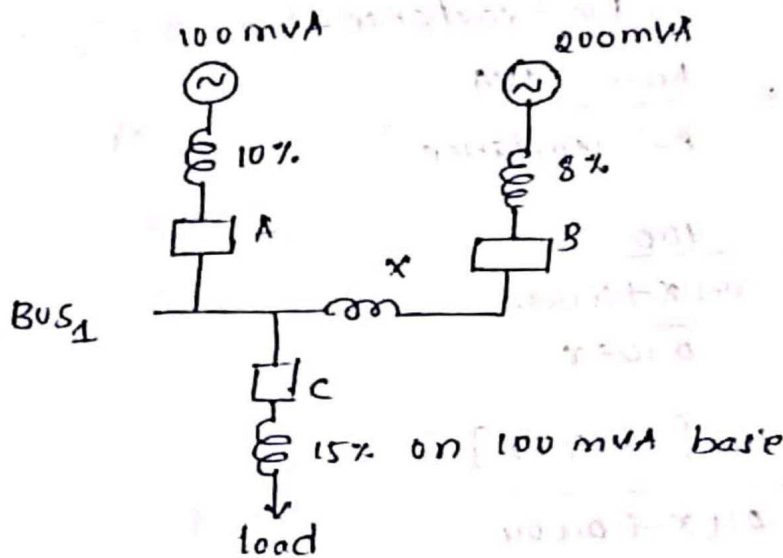 100 mVA
200 mVA
10%
8%
A
B
X
BUS1
C
15% on 100 mVA base
load